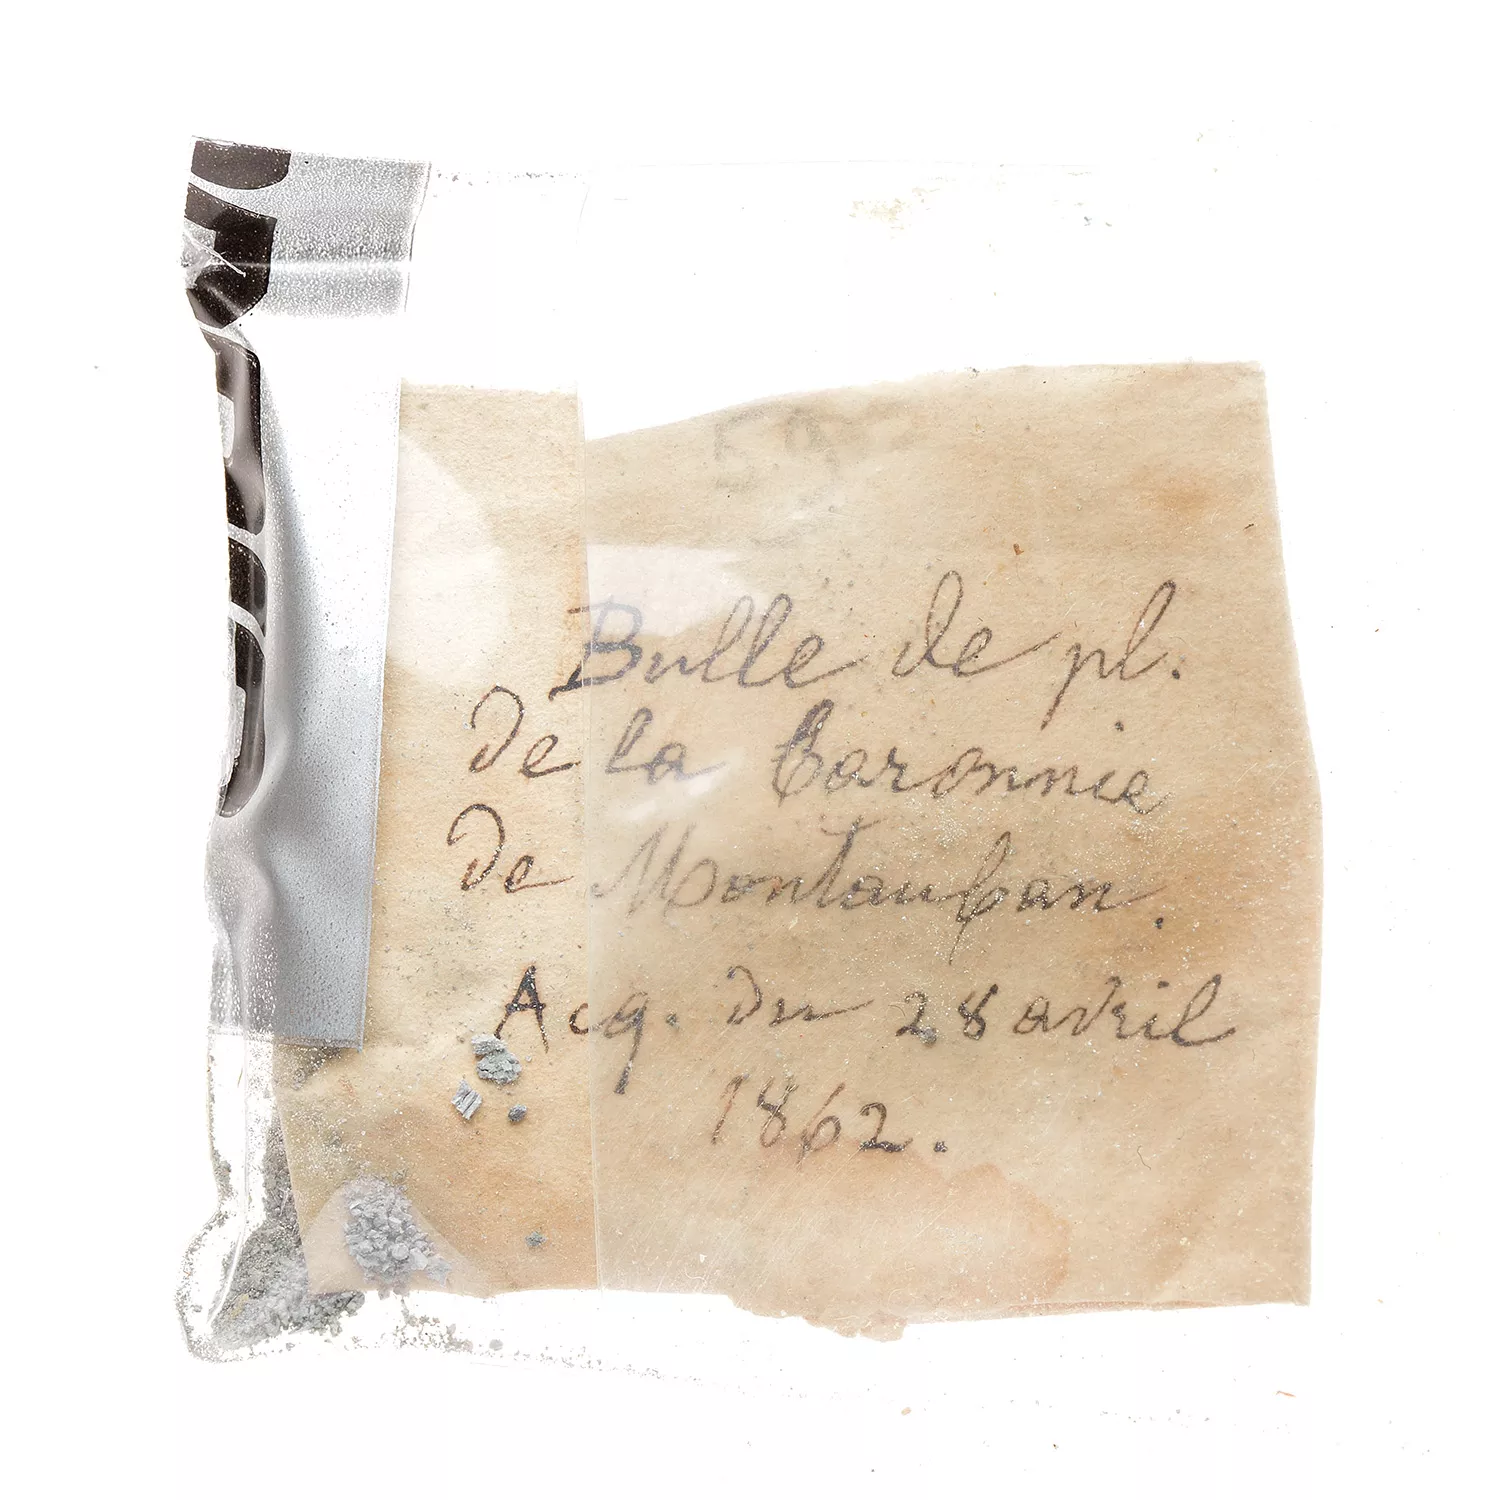 59
Bulle de pl.
de la Baronnie
de Montauban.
Acq. du 28 avril
1862.